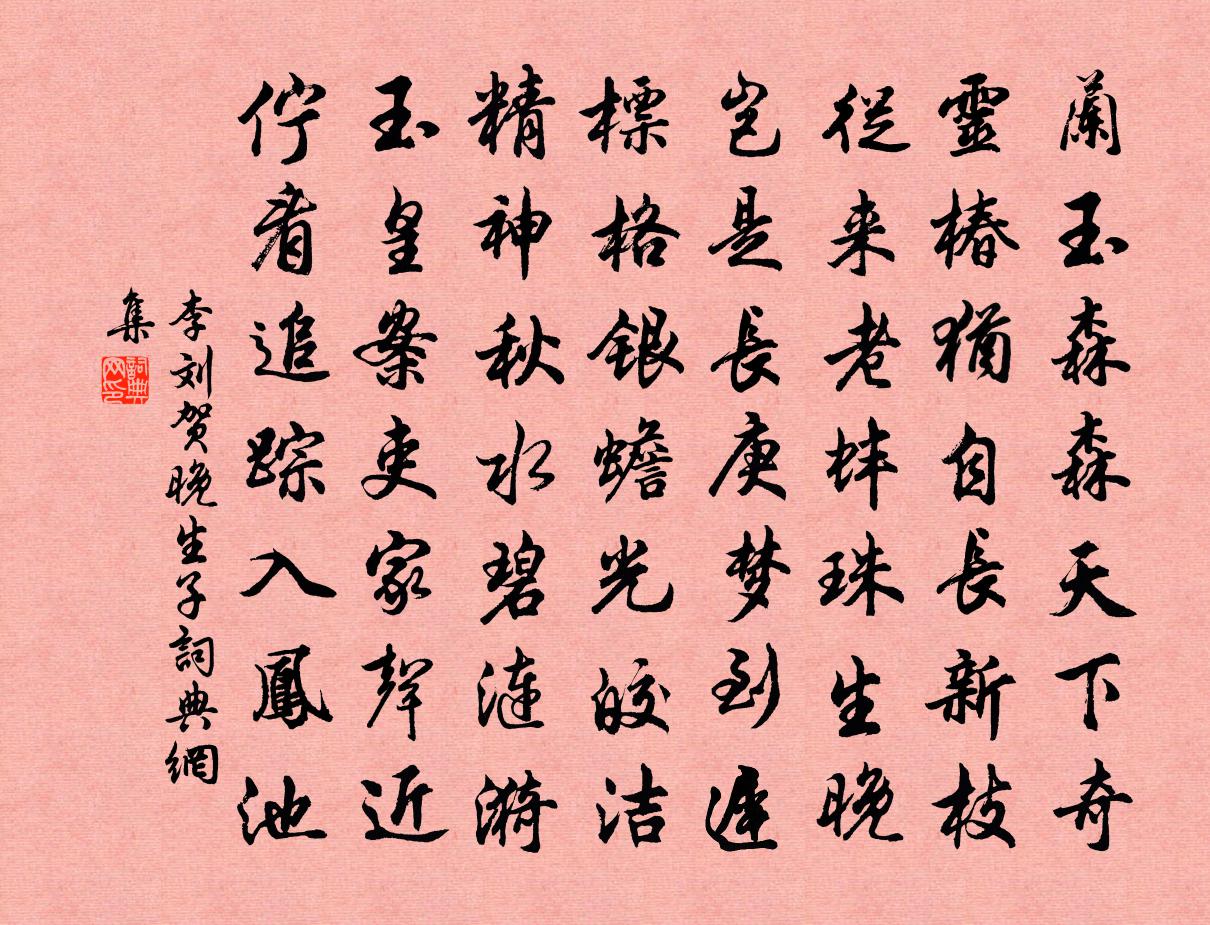 蘭玉森森天下奇
靈椿猶自長新枝
從来老蚌珠生晚
豈是長庚梦到遲
標格銀蟾光皎洁
精神秋水碧漣漪
玉皇案吏家聲近
佇看追踪入鳳池
李刘贺晚生子詞典網
集
詞典网印